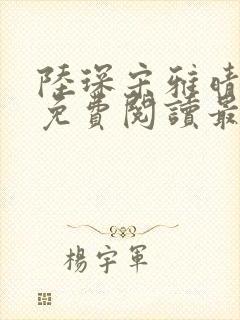 陸琛宋雅晴
免費閱讀最
楊宇軍